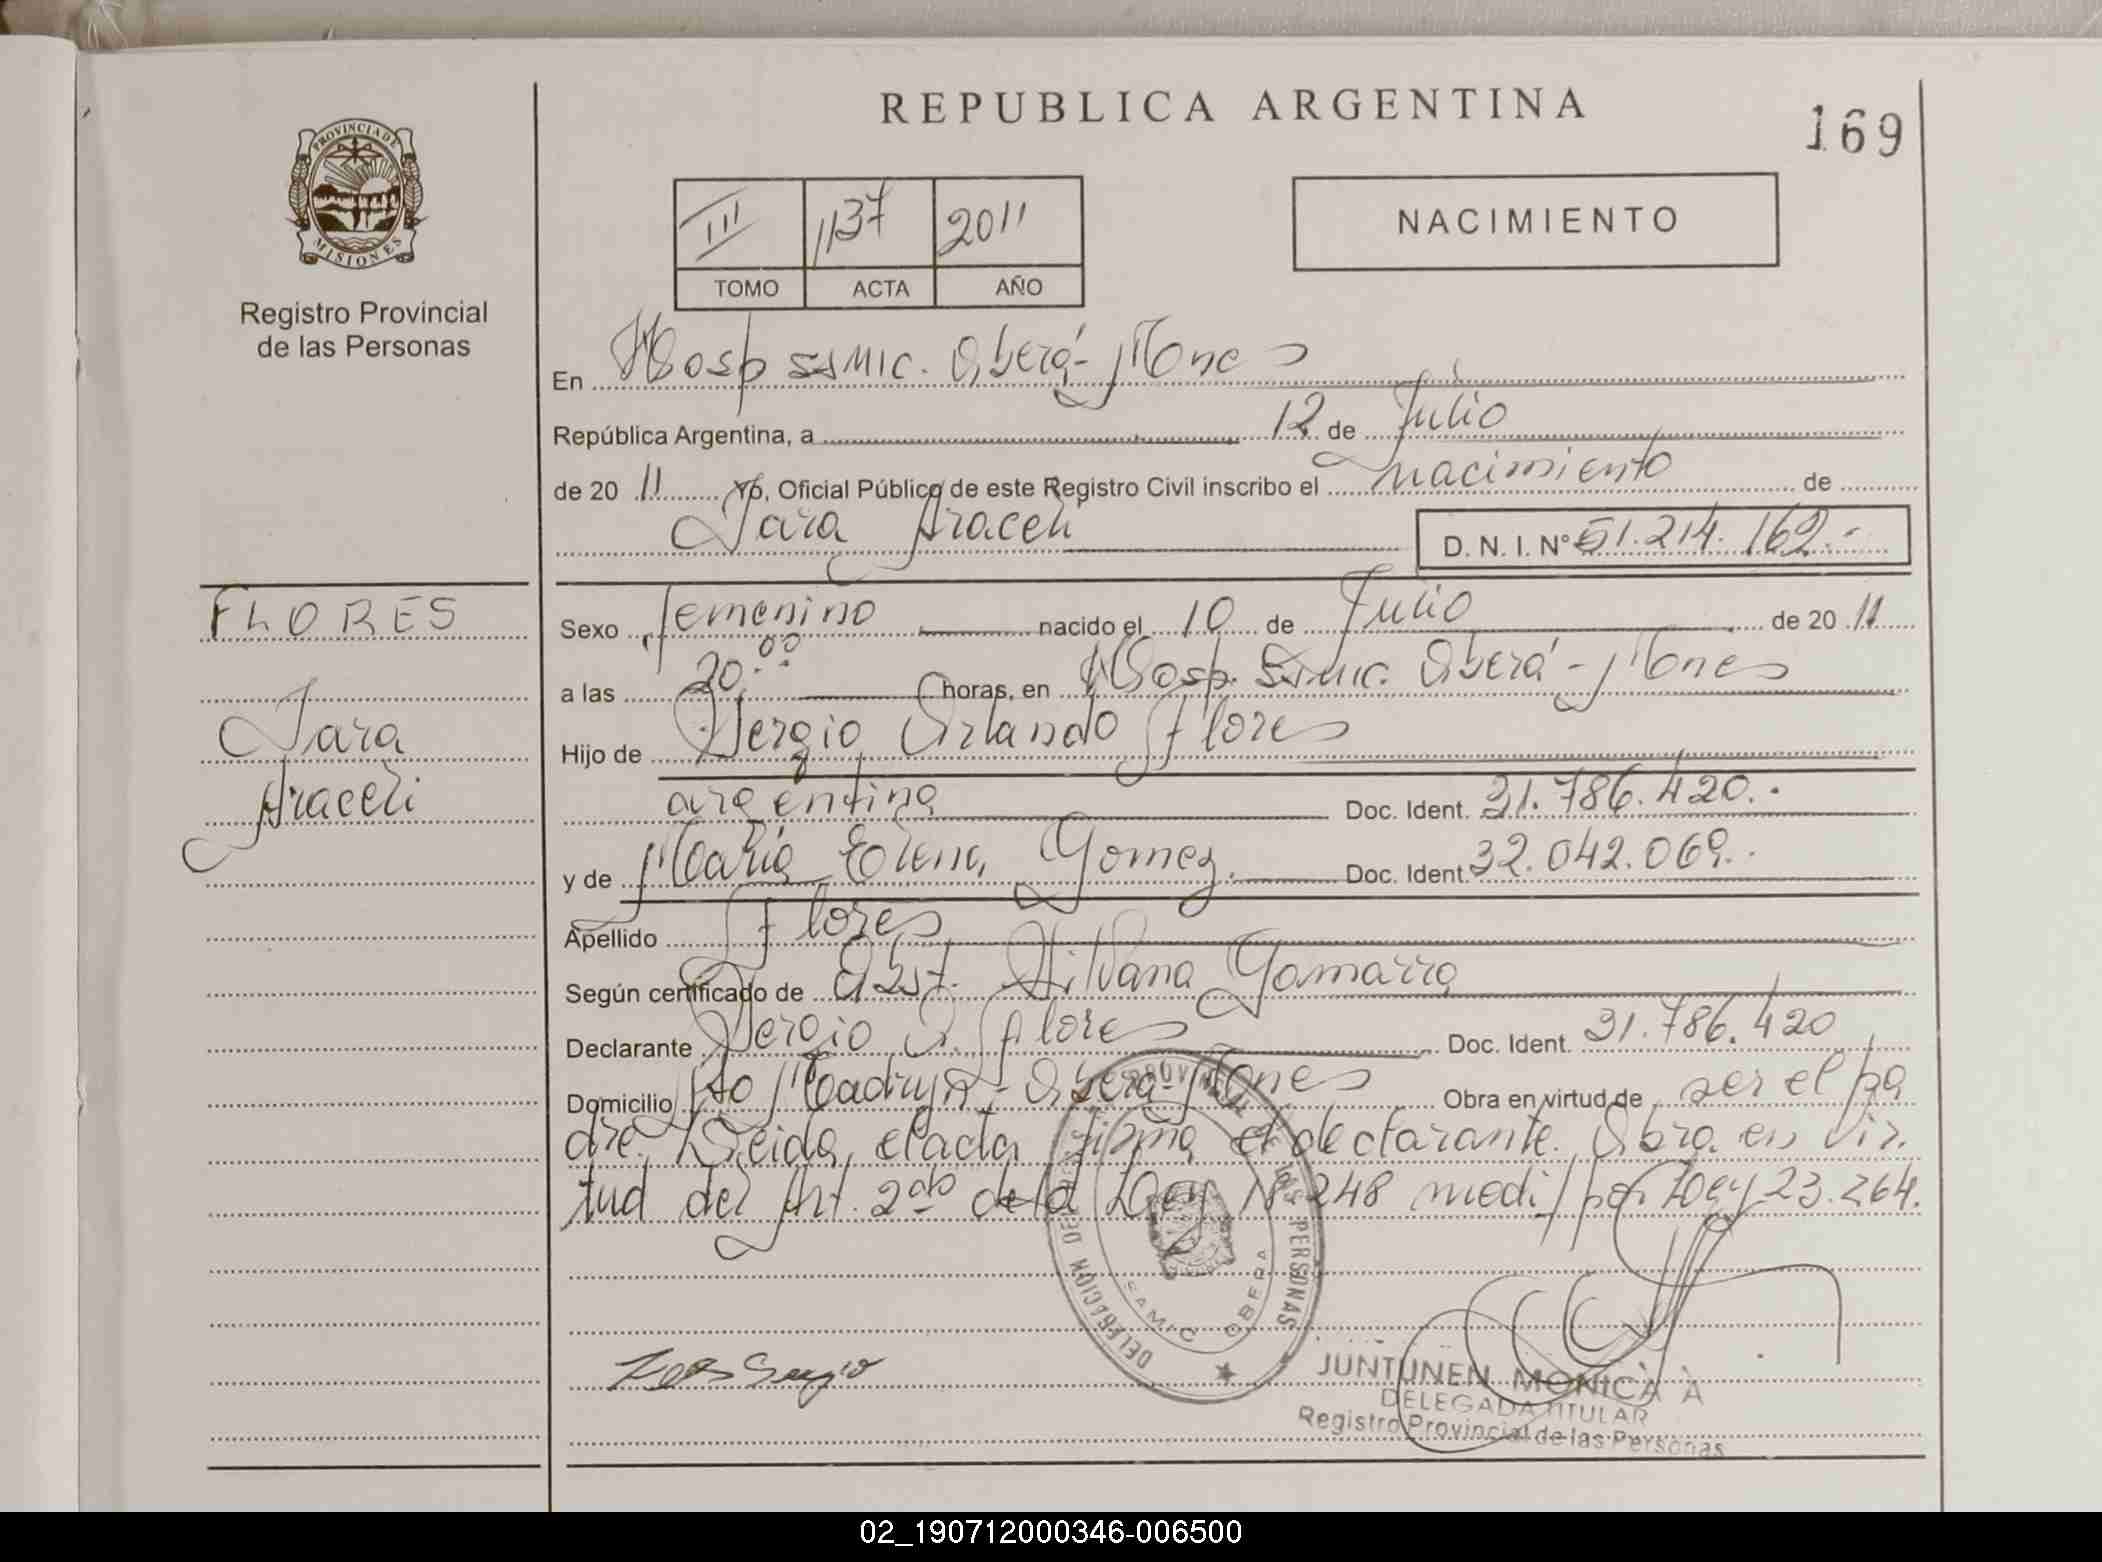 REPUBLICA ARGENTINA
169
PROVINCIA DE
MISIONES
Registro Provincial
de las Personas
III 1137 2011
TOMO ACTA AÑO
NACIMIENTO
En Hosp SAMIC. Oberá - Mones
República Argentina, a 12 de Julio
de 20 11 Yo, Oficial Público de este Registro Civil inscribo el nacimiento de
Jara Araceli
D. N. I. Nº 51.214.162.-
FLORES
Jara
Araceli
Sexo femenino nacido el 10 de Julio de 20 11
a las 20:00 horas, en Hosp. Samic. Oberá - Mones
Hijo de Sergio Orlando Flores
argentina Doc. Ident. 31.786.420.-
y de María Elena Gomez. Doc. Ident. 32.042.069.-
Apellido Flores
Según certificado de Obst. Silvana Gamarra
Declarante Sergio O. Flores Doc. Ident. 31.786.420
Domicilio Pto Madryn - Oberá - Mones Obra en virtud de ser el pa
dre. Leida el acta firma el declarante. Obra en vir.
tud del Art. 2do de la Ley 18.248 modif/por Ley 23.264.
DELEGACION DEL REGISTRO PROVINCIAL DE LAS PERSONAS
SAMIC OBERA
Sergio
JUNTUNEN MONICA A
DELEGADA TITULAR
Registro Provincial de las Personas
02_190712000346-006500